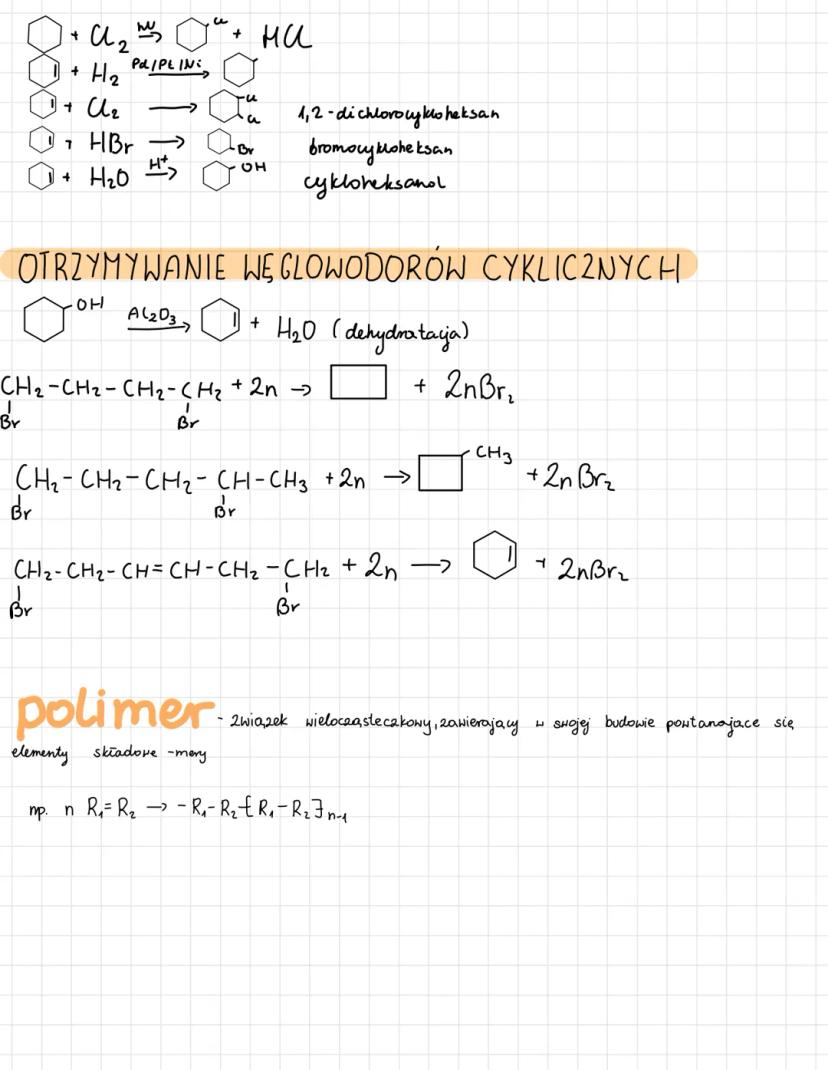 + Cl₂ hν→ Cl + HCl
+ H₂ Pd/Pt/Ni→
+ Cl₂ → Cl Cl 1,2-dichlorocykloheksan
+ HBr → Br bromocykloheksan
+ H₂O H⁺→ OH cykloheksanol
OTRZYMYWANIE WĘGLOWODORÓW CYKLICZNYCH
OH Al₂O₃→ + H₂O (dehydratacja)
CH₂-CH₂-CH₂-CH₂ + Zn → + ZnBr₂
Br Br
CH₂-CH₂-CH₂-CH-CH₃ + Zn → CH₃ + ZnBr₂
Br Br
CH₂-CH₂-CH=CH-CH₂-CH₂ + Zn → + ZnBr₂
Br Br
polimer - związek wielocząsteczkowy, zawierający w swojej budowie powtarzające się
elementy składowe -mery
np. n R₁=R₂ → -R₁-R₂-[R₁-R₂]n-1